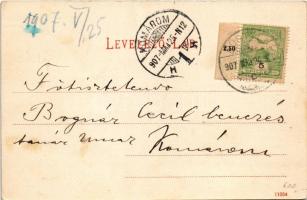 1907. V/25
LEVELEZŐ-LAP.
KOMÁROM
907
1
2.50
907
5
Főtisztelendő
Bognár Cecil benczés
tanár urnak
Komárom
11094